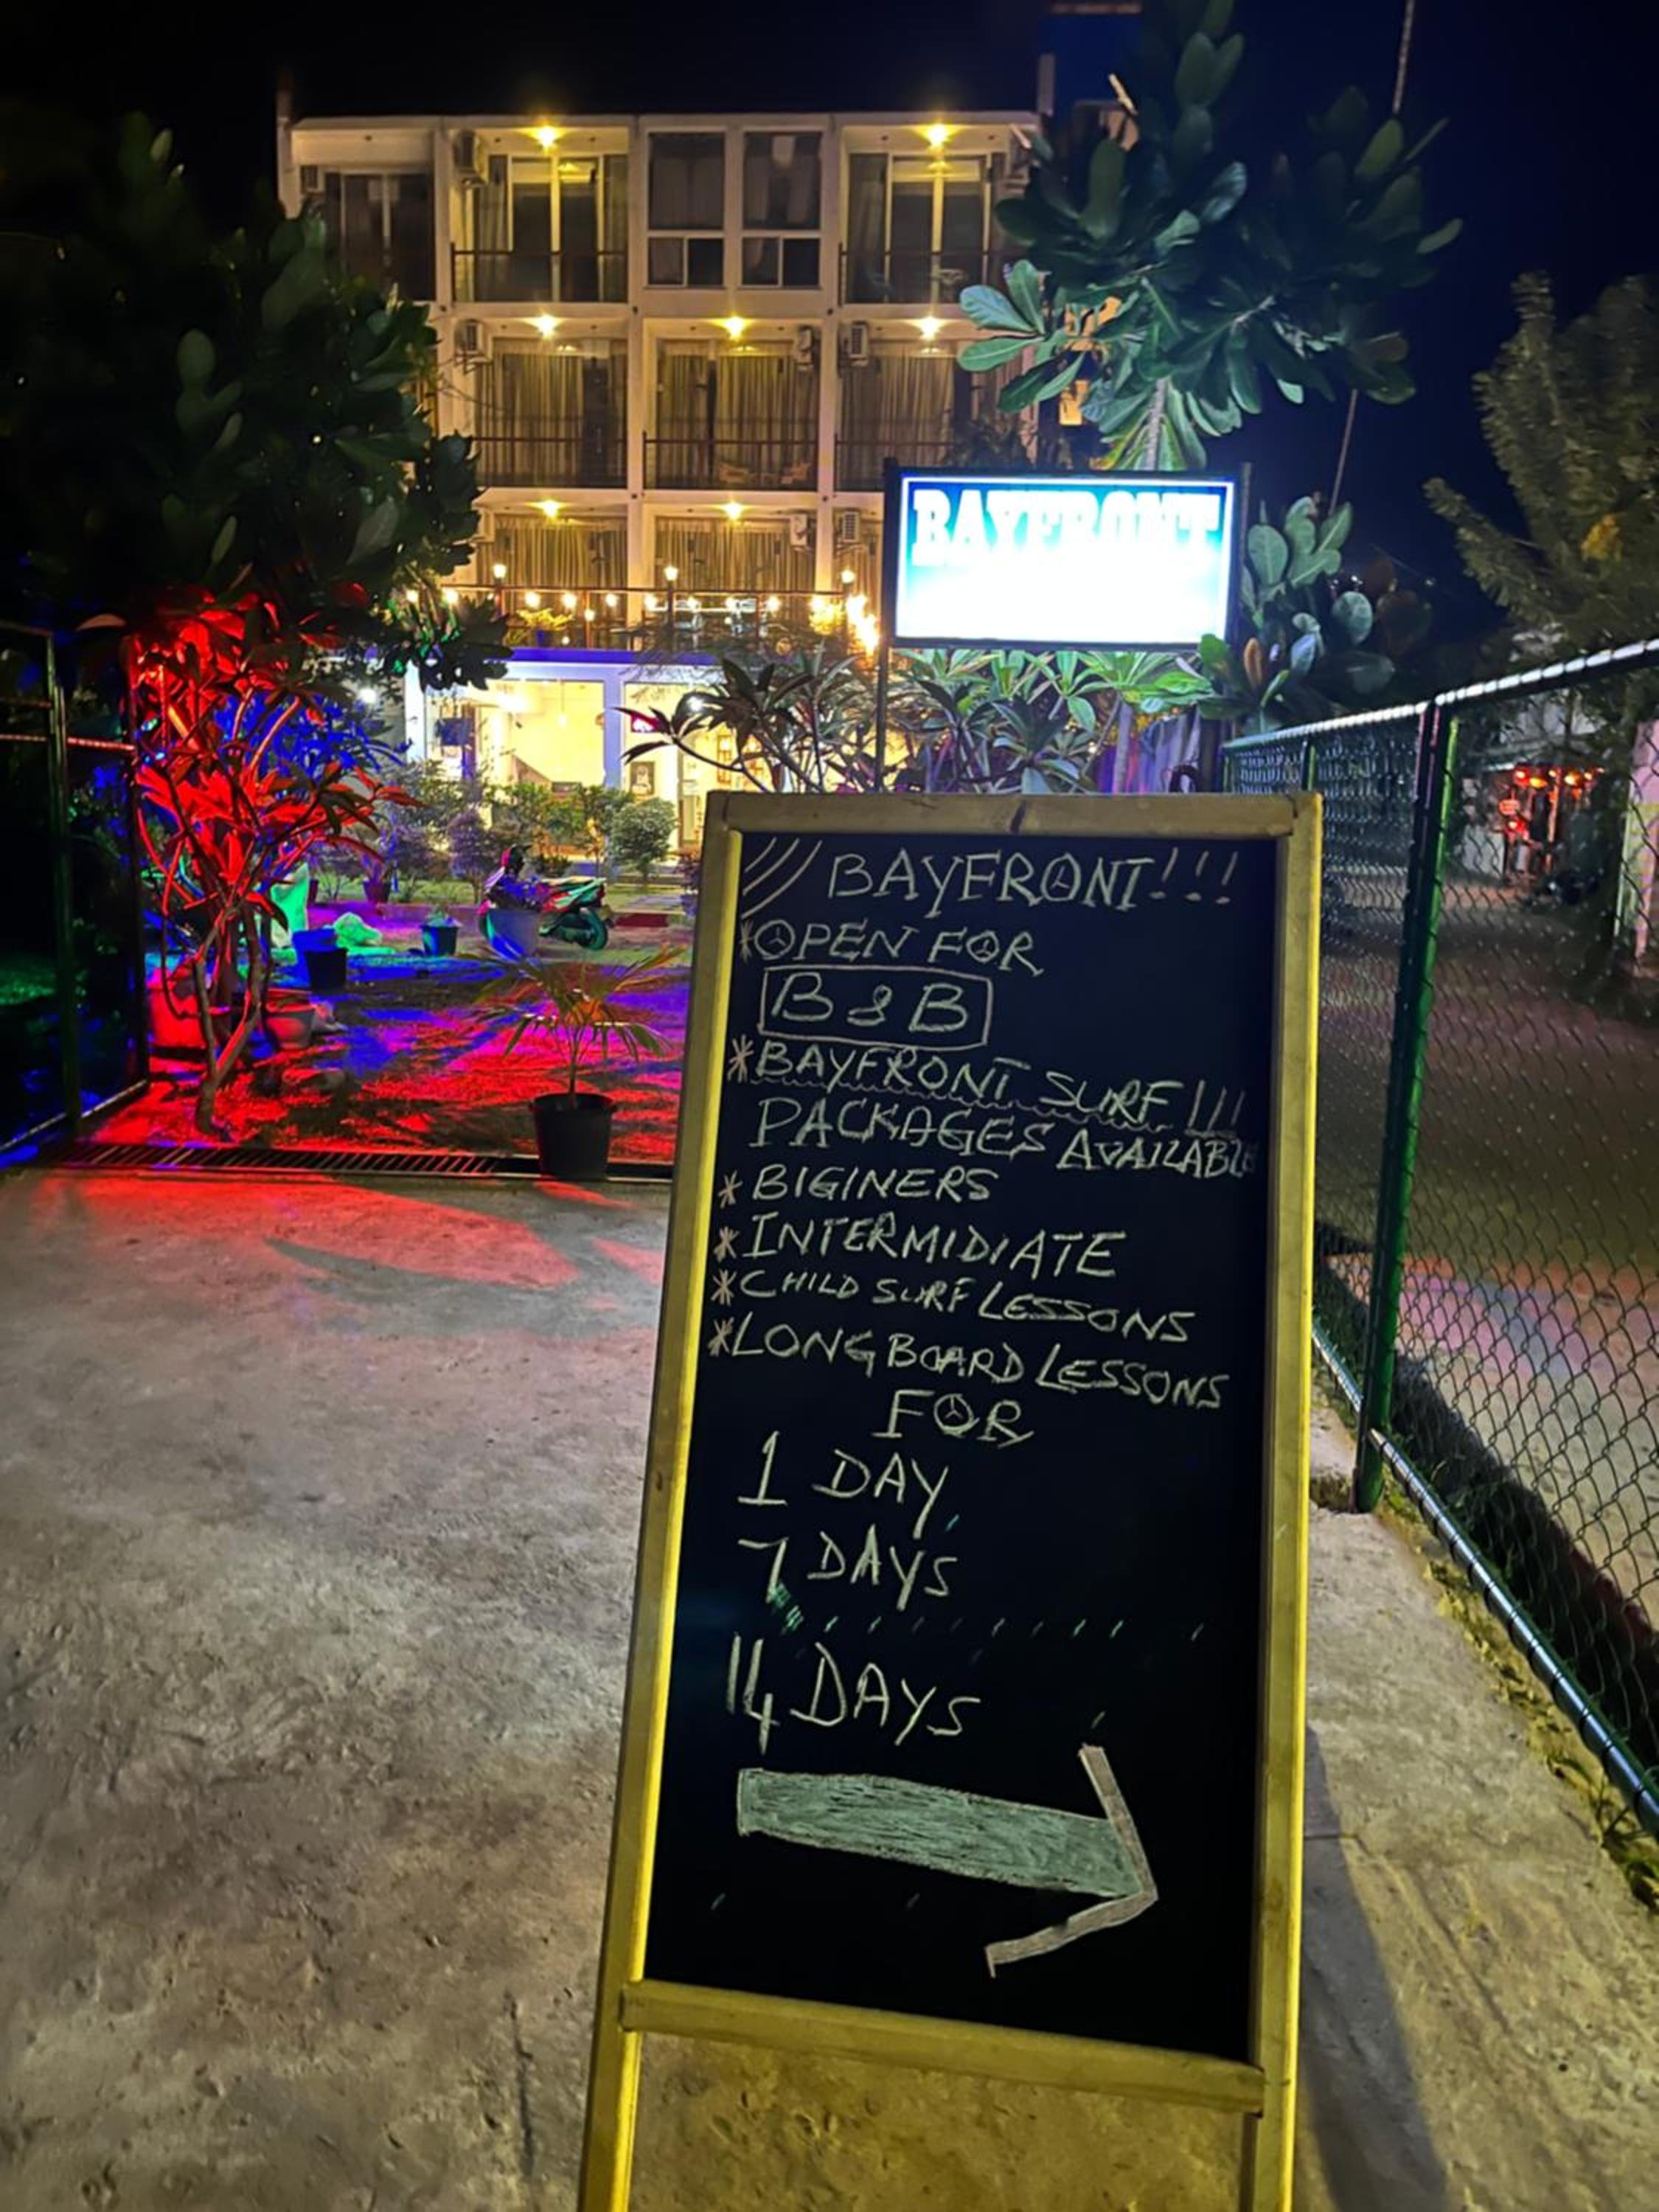 BAYFRONT
BAYFRONT!!!
*OPEN FOR
B & B
*BAYFRONT SURF!!!
PACKAGES AVAILABLE
* BIGINERS
*INTERMIDIATE
*CHILD SURF LESSONS
*LONG BOARD LESSONS
FOR
1 DAY
7 DAYS
14 DAYS